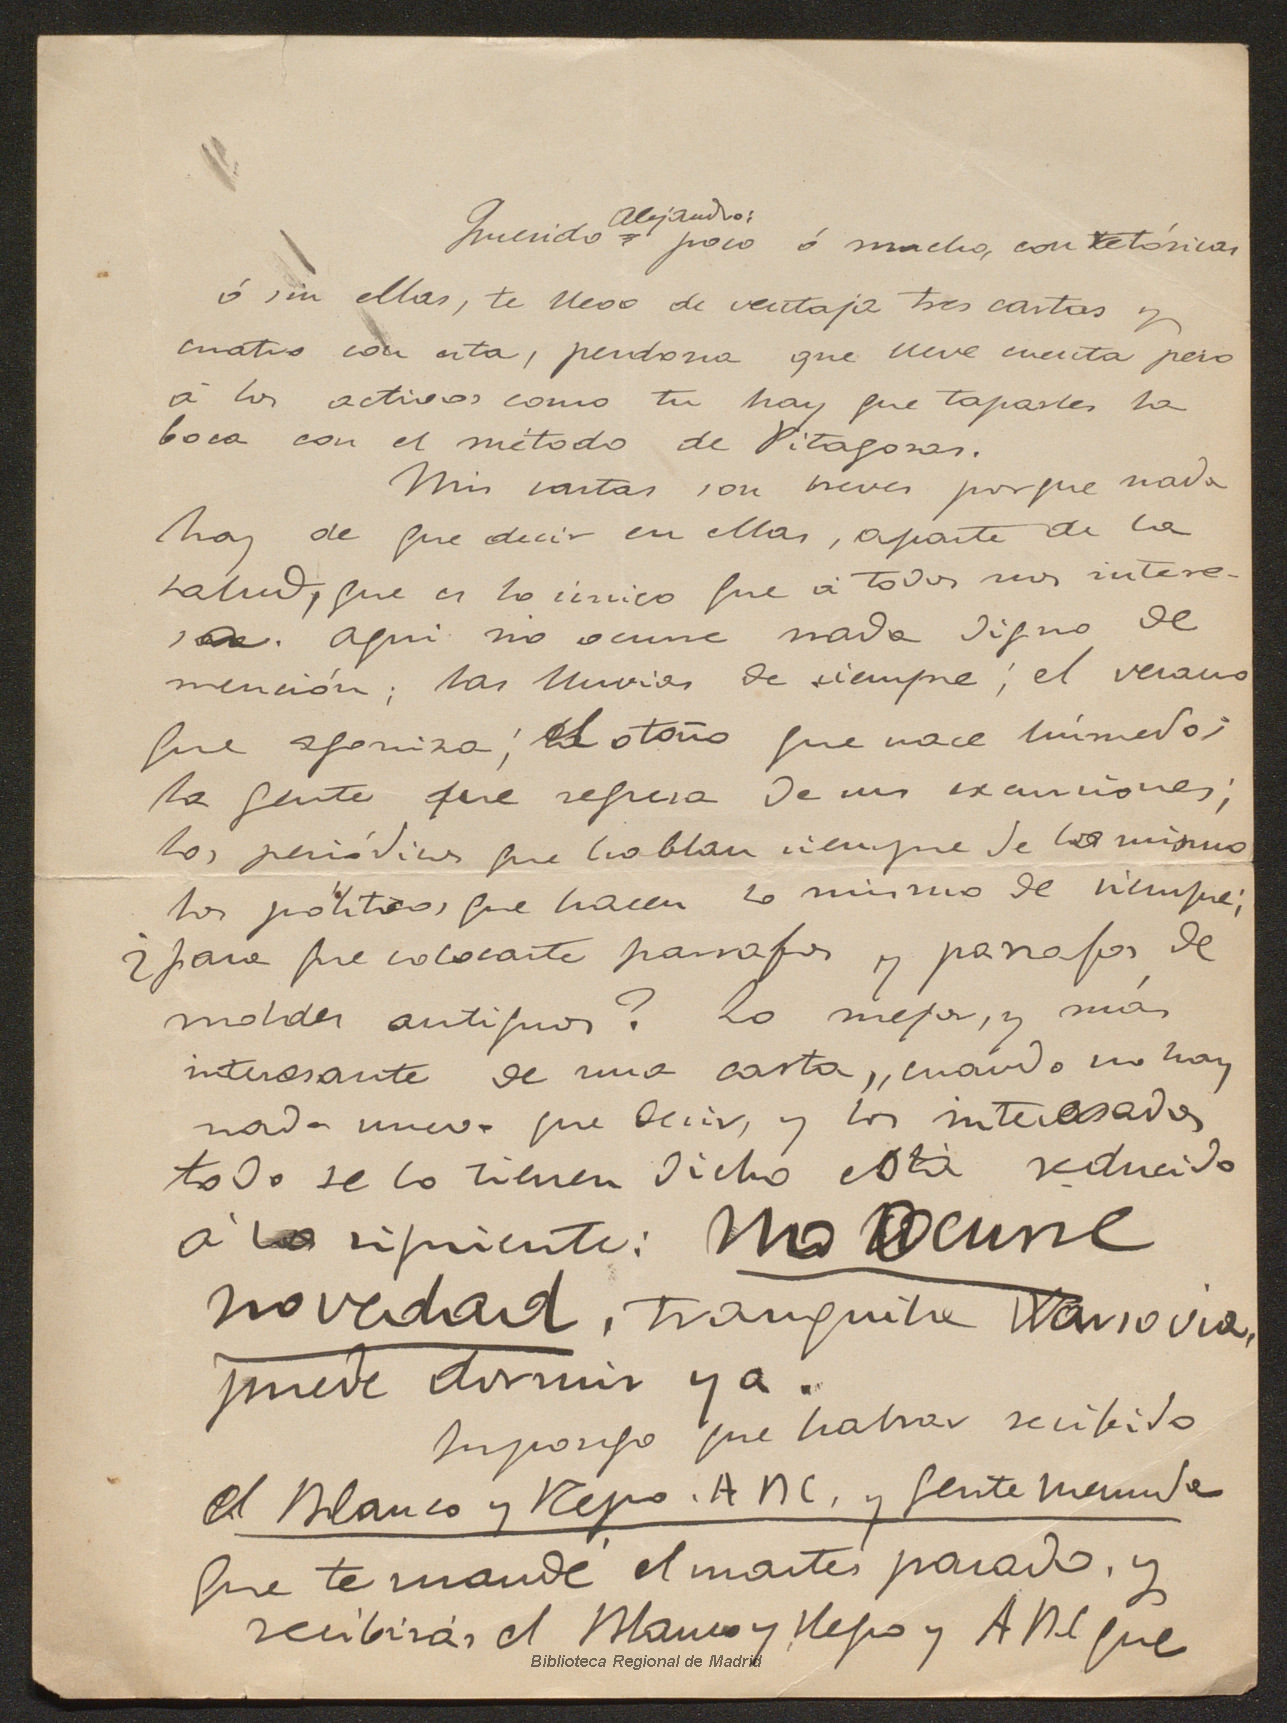 Querido Alejandro: poco ó mucho, con retóricas
ó sin ellas, te llevo de ventaja tres cartas y
cuatro con esta, perdona que lleve cuenta pero
á los activos como tu hay que taparles la
boca con el método de Pitagoras.
Mis cartas son breves porque nada
hay de que decir en ellas, aparte de la
salud, que es lo único que á todos nos intere-
sa. Aqui no ocurre nada digno de
mención; las lluvias de siempre; el verano
que agoniza; el otoño que nace húmedo;
la gente que regresa de sus excursiones;
los periódicos que hablan siempre de lo mismo
los políticos que hacen lo mismo de siempre;
¿para que colocarte parrafos y parrafos de
moldes antiguos? Lo mejor, y más
interesante de una carta, cuando no hay
nada nuevo que decir, y los interesados
todo se lo tienen dicho está reducido
á lo siguiente: No Ocurre
novedad, tranquila Varsovia,
puede dormir ya.
Supongo que habrás recibido
el Blanco y Negro. ABC, y Gente Menuda
que te mandé el martes pasado, y
recibirás el Blanco y Negro y ABC que
Biblioteca Regional de Madrid